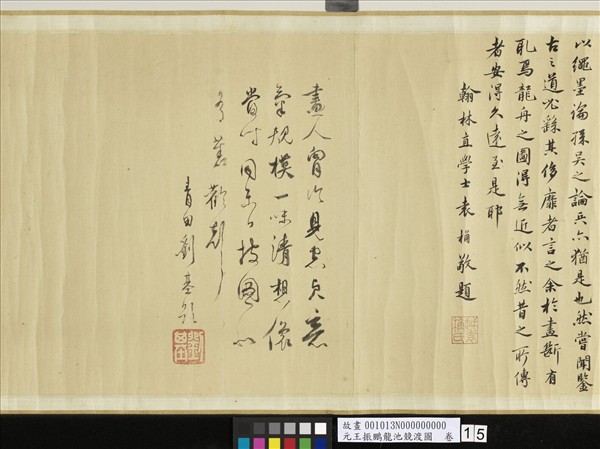 以繩墨論孫吳之論兵亦猶是也然嘗聞鑒
古之道尤繇其侈靡者言之余於畫斷有
取焉龍舟之圖得無近似不然昔之所傳
者安得久遠至是耶
翰林直學士袁桷敬題
畫人胷次見忠貞意
氣規模一味清想
當時同 披圖
有舊歡
青田劉基
故畫 001013N000000000
元王振鵬龍池競渡圖 卷
15